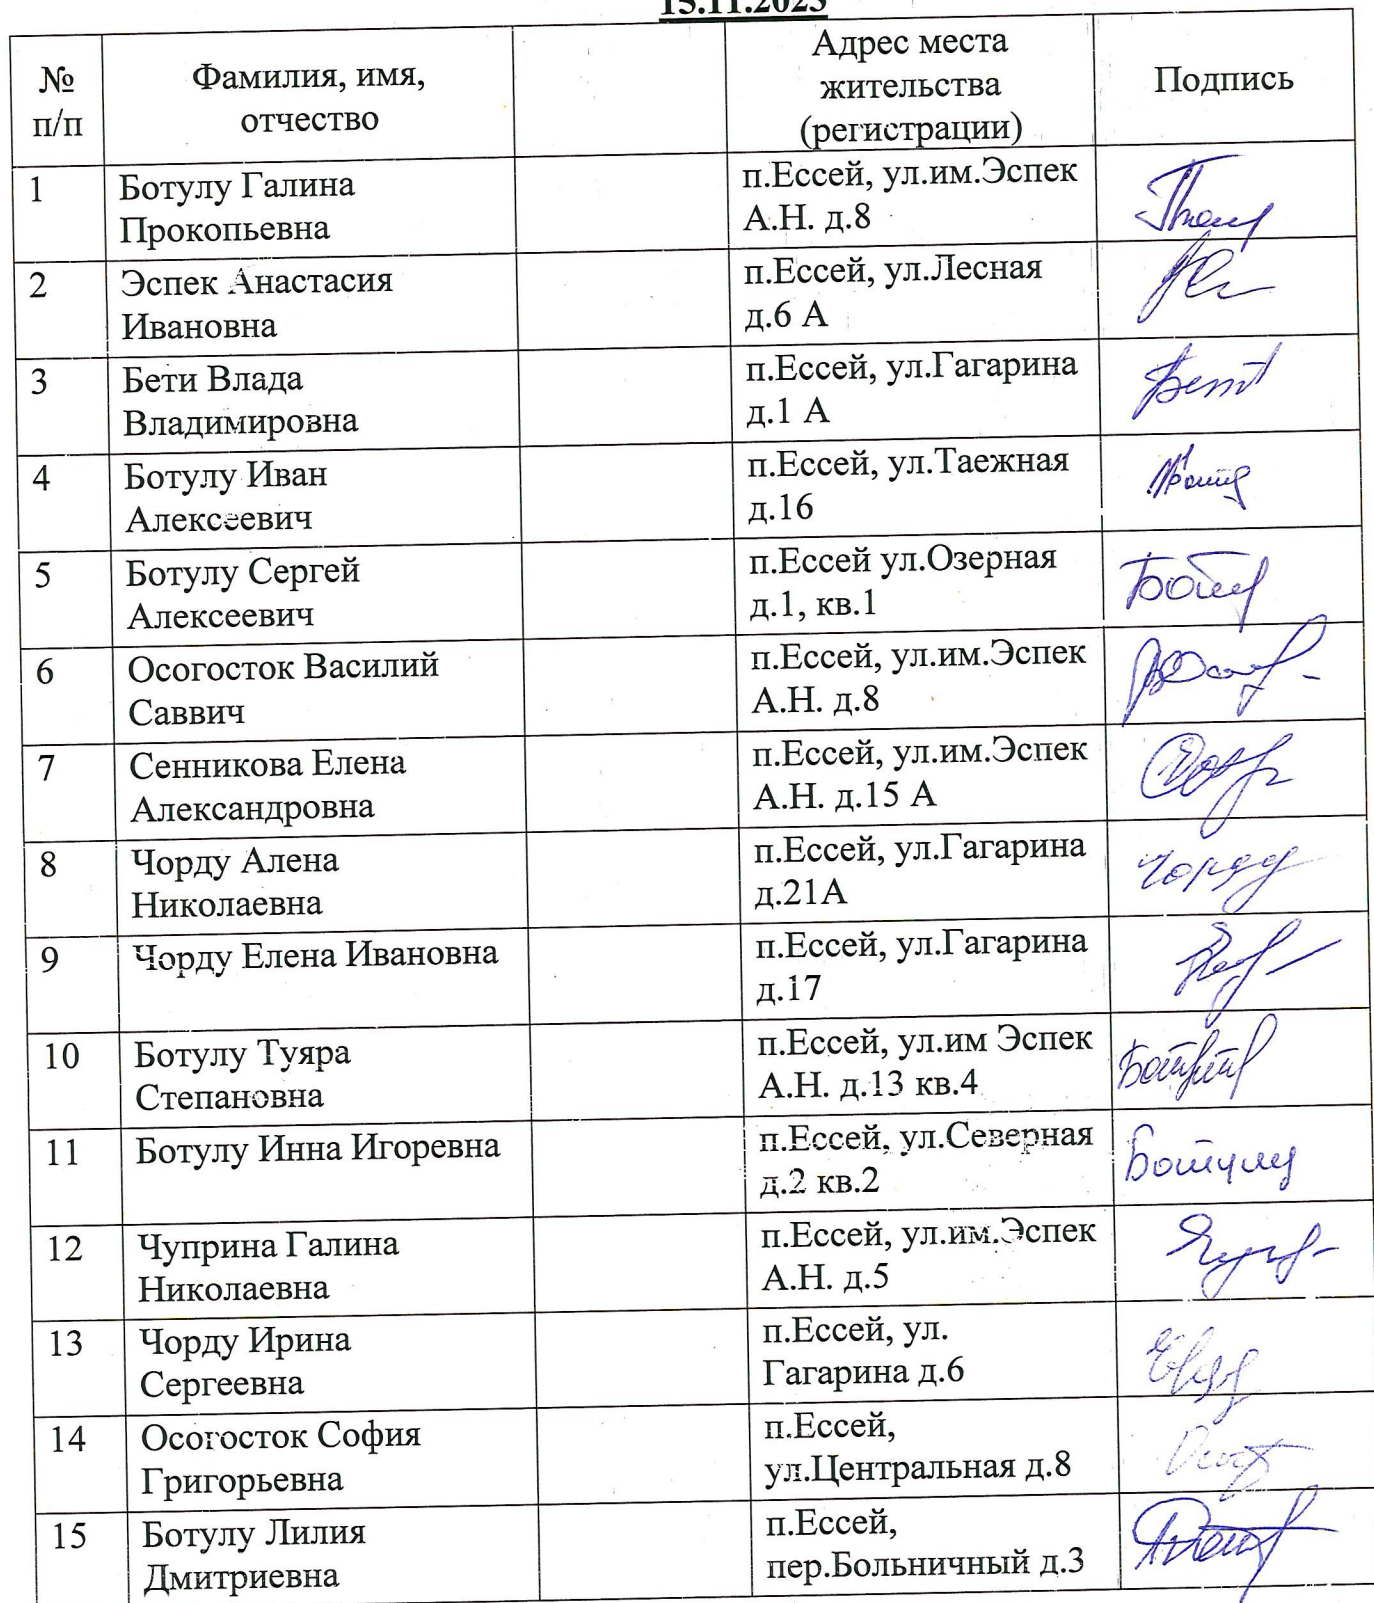 15.11.2023
№
п/п
Фамилия, имя,
отчество
Адрес места
жительства
(регистрации)
Подпись
1
Ботулу Галина
Прокопьевна
п.Ессей, ул.им.Эспек
А.Н. д.8
2
Эспек Анастасия
Ивановна
п.Ессей, ул.Лесная
д.6 А
3
Бети Влада
Владимировна
п.Ессей, ул.Гагарина
д.1 А
4
Ботулу Иван
Алексеевич
п.Ессей, ул.Таежная
д.16
5
Ботулу Сергей
Алексеевич
п.Ессей ул.Озерная
д.1, кв.1
6
Осогосток Василий
Саввич
п.Ессей, ул.им.Эспек
А.Н. д.8
7
Сенникова Елена
Александровна
п.Ессей, ул.им.Эспек
А.Н. д.15 А
8
Чорду Алена
Николаевна
п.Ессей, ул.Гагарина
д.21А
Чорду
9
Чорду Елена Ивановна
п.Ессей, ул.Гагарина
д.17
10
Ботулу Туяра
Степановна
п.Ессей, ул.им Эспек
А.Н. д.13 кв.4
11
Ботулу Инна Игоревна
п.Ессей, ул.Северная
д.2 кв.2
Ботулу
12
Чуприна Галина
Николаевна
п.Ессей, ул.им.Эспек
А.Н. д.5
13
Чорду Ирина
Сергеевна
п.Ессей, ул.
Гагарина д.6
14
Осогосток София
Григорьевна
п.Ессей,
ул.Центральная д.8
15
Ботулу Лилия
Дмитриевна
п.Ессей,
пер.Больничный д.3